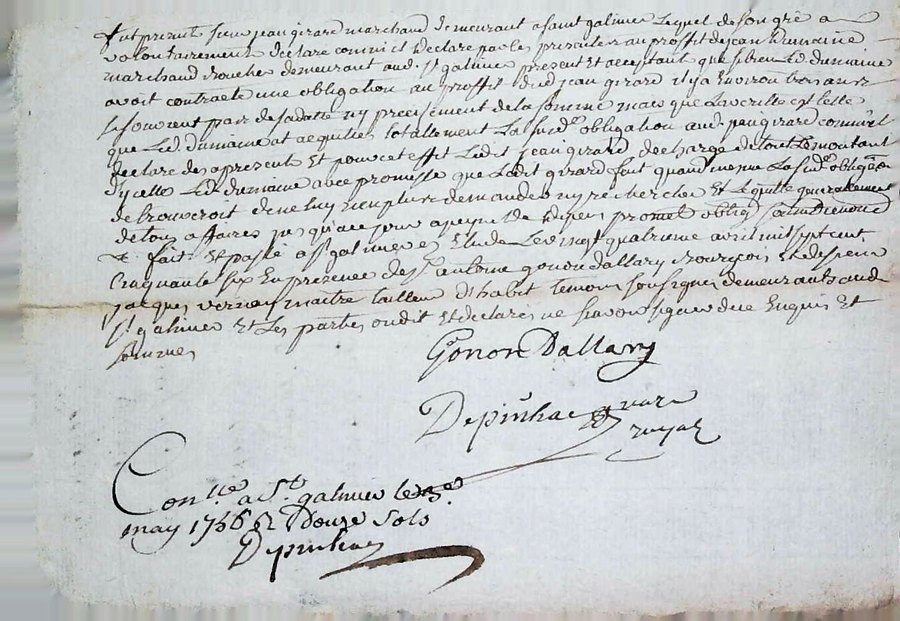 fut present sieur jean girard marchand demeurant a saint galmier Lequel de son gré a
volontairement declare comme il declare par les presentes au proffit de jean Dumaine
marchand boucher demeurant aud. St galmier present et acceptant que si bien Led. dumaine
avoit contracté une obligation au proffit dud. jean girard il y a environ trois ans
Le souvent pas de sa datte ny precisement de la somme mais que La verité est telle
que Led. dumaine at acquités totallement La susd.e obligation aud. jean girard comme il
declare des apresent Et pour cet effet Ledit jean girard decharge de tout Le montant
d'ycelle Led. dumaine avec promesse que Ledit girard fait quand mesme La susd.e oblig.on
se trouveroit de ne luy rien plus demander ny rechercher Et Le quitte generalement
de tous affaires jusqu'a ce jour a peyne de depens promet oblig.
& fait Et passé a St galmier Etude Le vingt quatrieme avril mil sept cent
Cinquante six En presence de Sr. antoine gonon dallary Bourgeois Et de sieur
jacques vernay maitre tailleur d'habit temoins soussignes demeurants aud.
St. galmier Et Les parties ont dit Et declaré ne scavoir signer de ce Enquis Et
sommes
Gonon Dallary
Depinhac
royal
Con.lle a St. galmier le
may 1756 douze sols
Depinhac